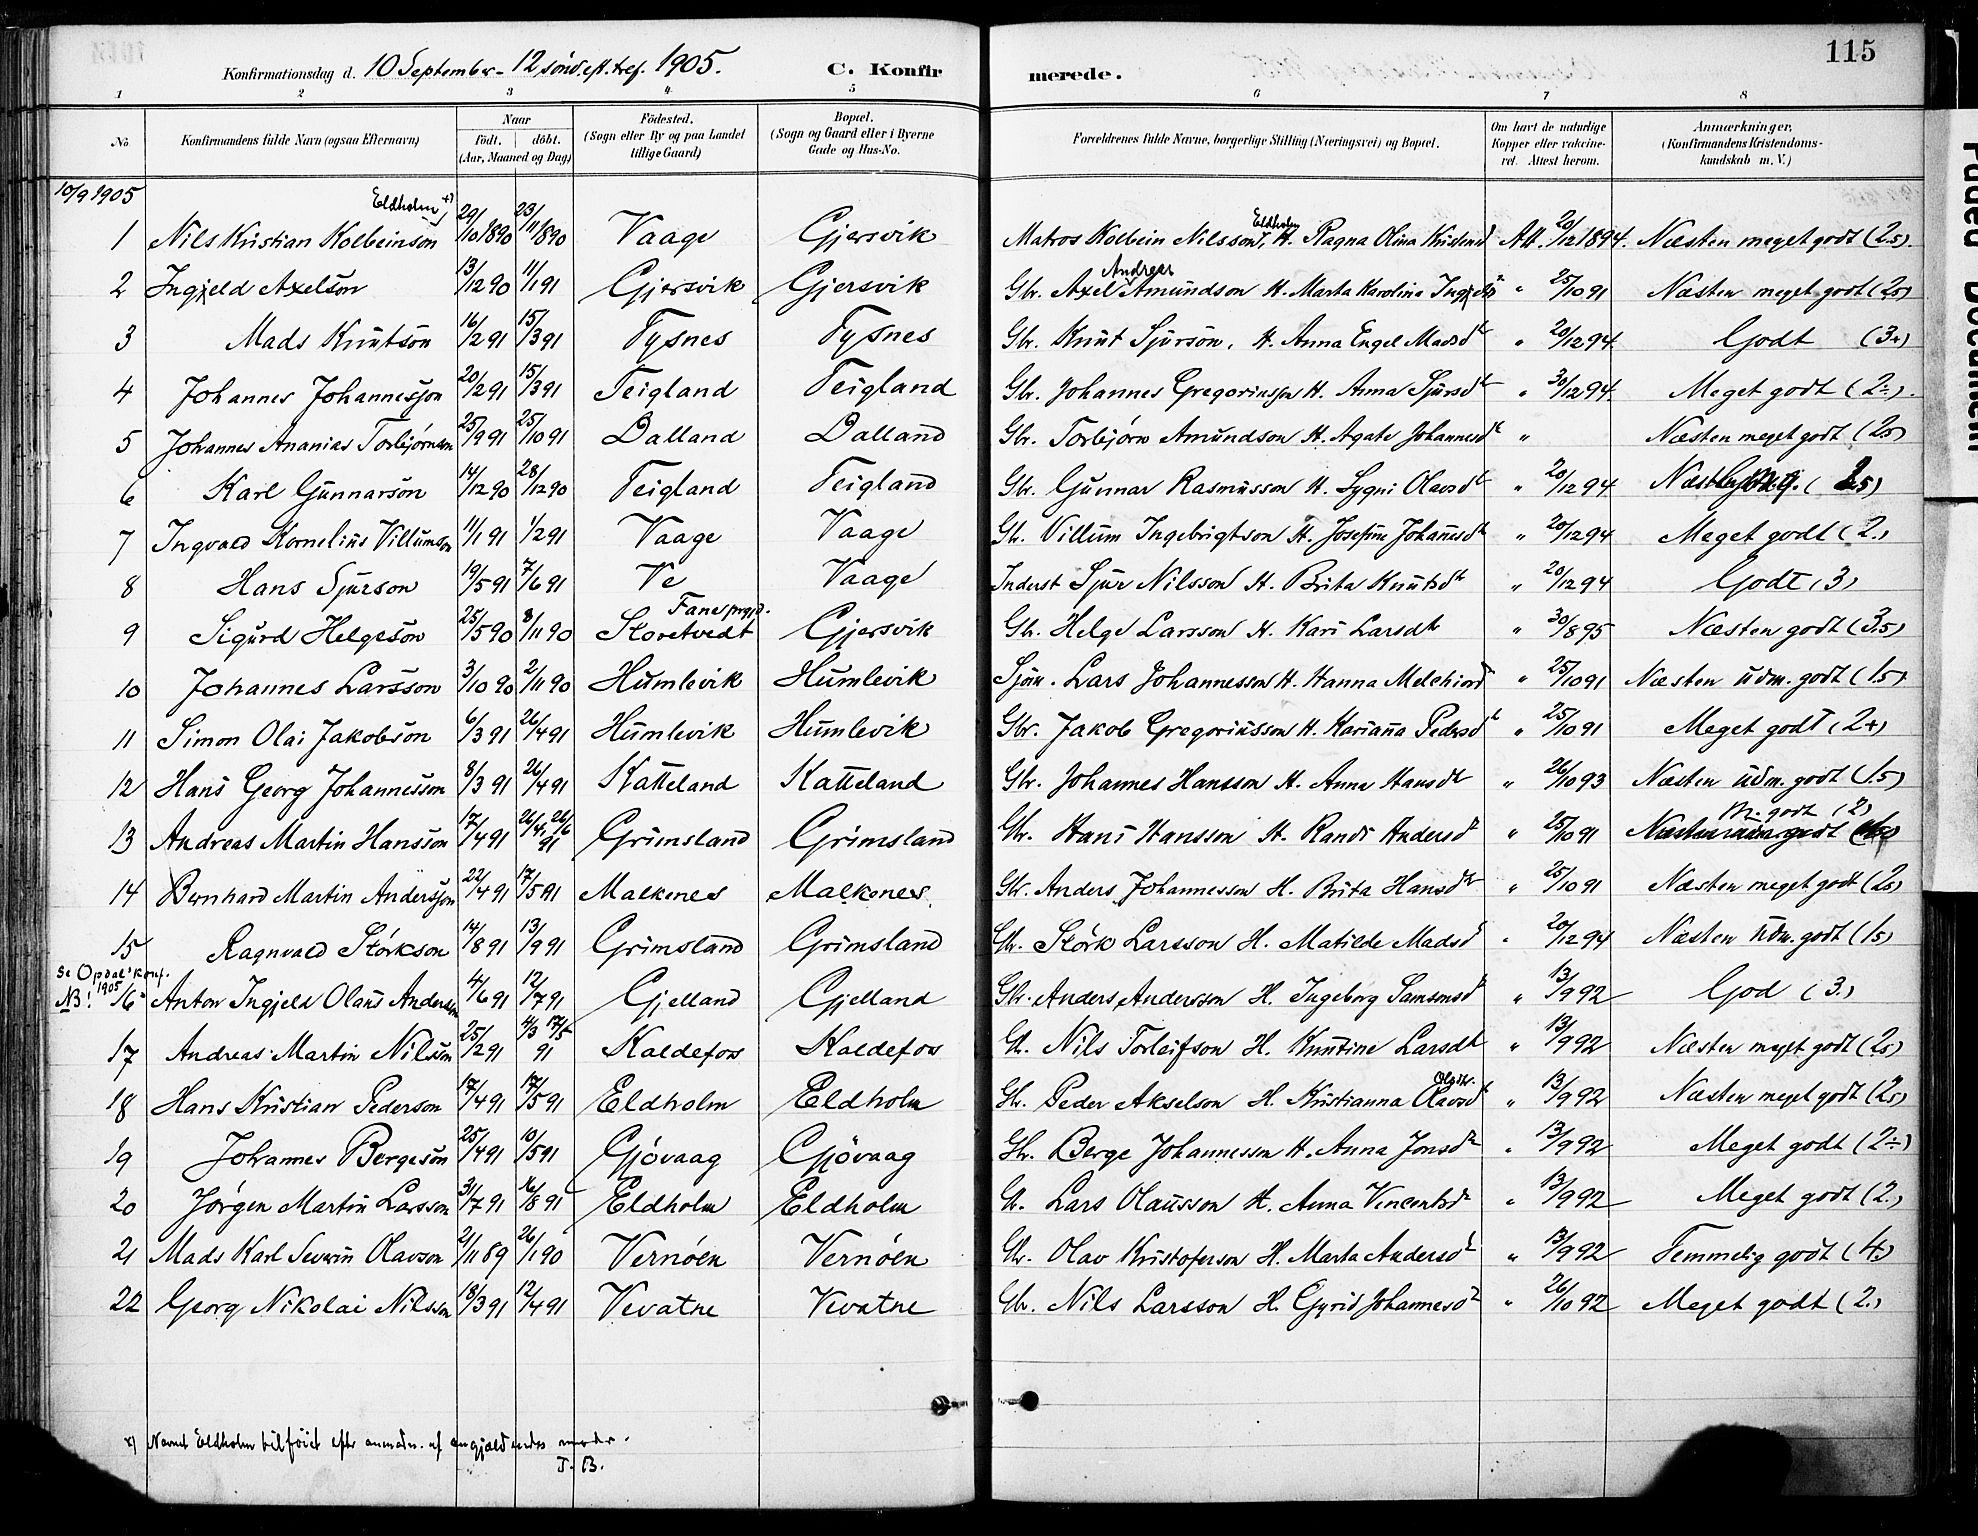 115
Konfirmationsdag d. 10 September - 12 sönd. eft. tref. 1905. C. Konfirmerede.
1 2 3 4 5 6 7 8
No. Konfirmandens fulde Navn (ogsaa Efternavn) Naar født. døbt. (Aar, Maaned og Dag) Fødested. (Sogn eller By og paa Landet tillige Gaard) Bopæl. (Sogn og Gaard eller i Byerne Gade og Hus-No. Forældrenes fulde Navne, borgerlige Stilling (Næringsvei) og Bopæl. Om havt de naturlige Kopper eller vakcineret. Attest herom. Anmærkninger. (Konfirmandens Kristendomskundskab m. V.)
10/9 1905
1 Nils Kristian Kolbeinson Eldholm x) 29/10 1890 23/11 1890 Vaage Gjersvik Matros Kolbein Nilsson Eldholm, H. Ragna Olina Kristensd Att. 20/12 1894. Næsten meget godt (2.5).
2 Ingjeld Axelson 13/12 90 11/1 91 Gjersvik Gjersvik Gbr. Axel Andreas Amundson H. Marta Karolina Ingjeldsd " 25/10 91 Næsten meget godt (2.5)
3 Mads Knutson 16/2 91 15/3 91 Tysnes Tysnes Gbr. Knut Sjurson, H. Anna Engel Madsdt " 20/12 94 Godt (3+)
4 Johannes Johannesson 20/2 91 15/3 91 Teigland Teigland Gbr. Johannes Gregoriusson H. Anna Sjursdt " 30/12 94 Meget godt (2÷).
5 Johannes Ananias Torbjörnson 25/9 91 25/10 91 Dalland Dalland Gbr. Torbjörn Amundson H. Agate Johannesdt " Næsten meget godt (2.5)
6 Karl Gunnarson 14/12 90 28/12 90 Teigland Teigland Gbr. Gunnar Rasmusson H. Sygni Olavsdt " 20/12 94 Næst m.g. (2.5)
7 Ingvald Kornelius Villumson 11/1 91 1/2 91 Vaage Vaage Gb. Villum Ingebrigtson H. Josefine Johannesdt " 20/12 94 Meget godt (2.)
8 Hans Sjurson 19/5 91 7/6 91 Ve Vaage Inderst Sjur Nilsson H. Brita Knutsdt " 20/12 94 Godt (3)
9 Sigurd Helgeson 25/5 90 8/11 90 Storetvedt Fane prgjd. Gjersvik Gbr. Helge Larsson H. Kari Larsdt " 30/8 95 Næsten godt (3.5)
10 Johannes Larsson 3/10 90 2/11 90 Humlevik Humlevik Sjöm. Lars Johannesson H. Hanna Melchiord " 25/10 91 Næsten udm. godt (1.5)
11 Simon Olai Jakobson 6/3 91 26/4 91 Humlevik Humlevik Gbr. Jakob Gregoriusson H. Karianna Pedersdt " 25/10 91 Meget godt (2+)
12 Hans Georg Johannesson 8/3 91 26/4 91 Katteland Katteland Gbr. Johannes Hansson H. Anna Hansdt " 26/10 93 Næsten udm. godt (1.5)
13 Andreas Martin Hansson 17/4 91 26/4, 26/6 91 Grimsland Grimsland Gbr. Hans Hansson H. Randi Andersd " 25/10 91 M. godt (2)
14 Bernhard Martin Andersson 22/4 91 17/5 91 Malkenes Malkenes Gbr. Anders Johannesson H. Brita Hansdt " 25/10 91 Næsten meget godt (2.5)
15 Ragnvald Störkson 14/8 91 13/9 91 Grimsland Grimsland Gbr. Störk Larsson H. Matilde Madsd " 20/12 94 Næsten udm. godt (1.5)
Se Opdal's konf. 1905
NB! 16 Anton Ingjeld Olaus Anderson 4/6 91 12/7 91 Gjelland Gjelland Gbr. Anders Andersson H. Ingeborg Samsonsd " 13/9 92 God (3.)
17 Andreas Martin Nilsson 25/2 91 4/3 17/5 91 Kaldefoss Kaldefoss G. Nils Torleifson H. Knutine Larsdt " 13/9 92 Næsten meget godt (2.5)
18 Hans Kristian Pederson 17/4 91 17/5 91 Eldholm Eldholm Gb. Peder Akselson H. Kristianna Olavsdt " 13/9 92 Næsten meget godt (2.5)
19 Johannes Bergeson 25/4 91 10/5 91 Gjövaag Gjövaag Gbr. Berge Johannesson H. Anna Jonsdt " 13/9 92 Meget godt (2÷)
20 Jörgen Martin Larsson 31/7 91 16/8 91 Eldholm Eldholm G. Lars Olausson H. Anna Vincentsd " 13/9 92 Meget godt (2.)
21 Mads Karl Severin Olavson 21/11 89 26/1 90 Vernöen Vernöen Gbr. Olav Kristoferson H. Marta Andersdt " 13/9 92 Temmelig godt (4.)
22 Georg Nikolai Nilsson 18/3 91 12/4 91 Vevatne Vevatne Gbr. Nils Larsson H. Gyrid Johannesdt " 26/10 92 Meget godt (2.)
x) Navnet Eldholm tilföiet efter anmodn. af angjældendes moder.
J. B.
Faded Document